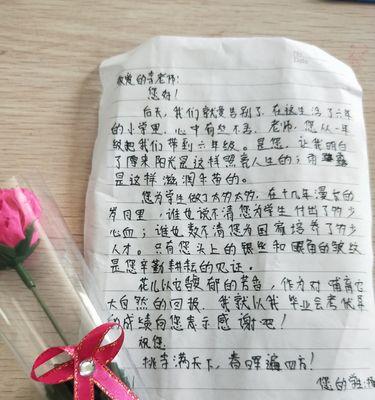 敬爱的李老师:
您好!
后天,我们就要告别了,在这生活了六年
的小学里,心中有些不舍。老师,您从一年
级把我们带到六年级。是您,让我明白
了原来阳光是这样照亮人生的;雨露
是这样滋润禾苗的。
您为学生做了太多太多,在十几年漫长的
岁月里,谁也说不清您为学生付出了多少
心血;谁也数不清您为国育培养了多少
人才。只有您头上的银丝和眼角的皱纹
是您辛勤耕耘的见证。
花儿以它馥郁的芳香,作为对哺育它
大自然的回报,我就以我毕业会考优异
的成绩向您表示感谢吧!
祝您
桃李满天下,春晖遍四方!
您的学生: